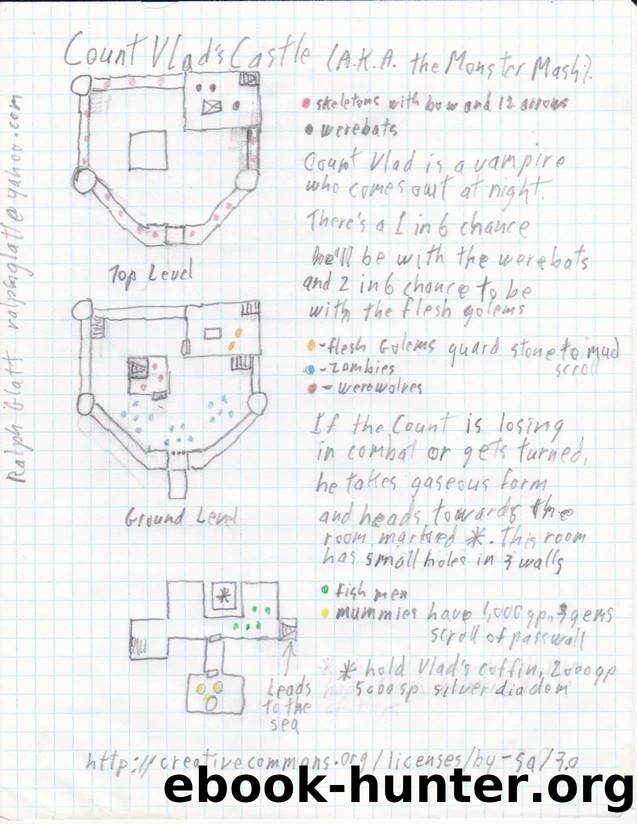 Count Vlad's Castle (A.K.A. the Monster Mash).
skeletons with bow and 12 arrows
werebats
Count Vlad is a vampire
who comes out at night.
There's a 1 in 6 chance
he'll be with the werebats
and 2 in 6 chance to be
with the flesh golems
Top Level
-flesh Golems guard stone to mud
scroll
-zombies
-werewolves
If the Count is losing
in combat or gets turned,
he takes gaseous form
and heads towards the
room marked *. This room
has small holes in 3 walls
Ground Level
fish men
mummies have 4,000 gp, 3 gems
scroll of passwall
*
* hold Vlad's coffin, 2000gp
5000sp silver diadem
Leads
to the
sea
Ralph Glatt ralphglatt@yahoo.com
http://creativecommons.org/licenses/by-sa/3.0
ebook-hunter.org